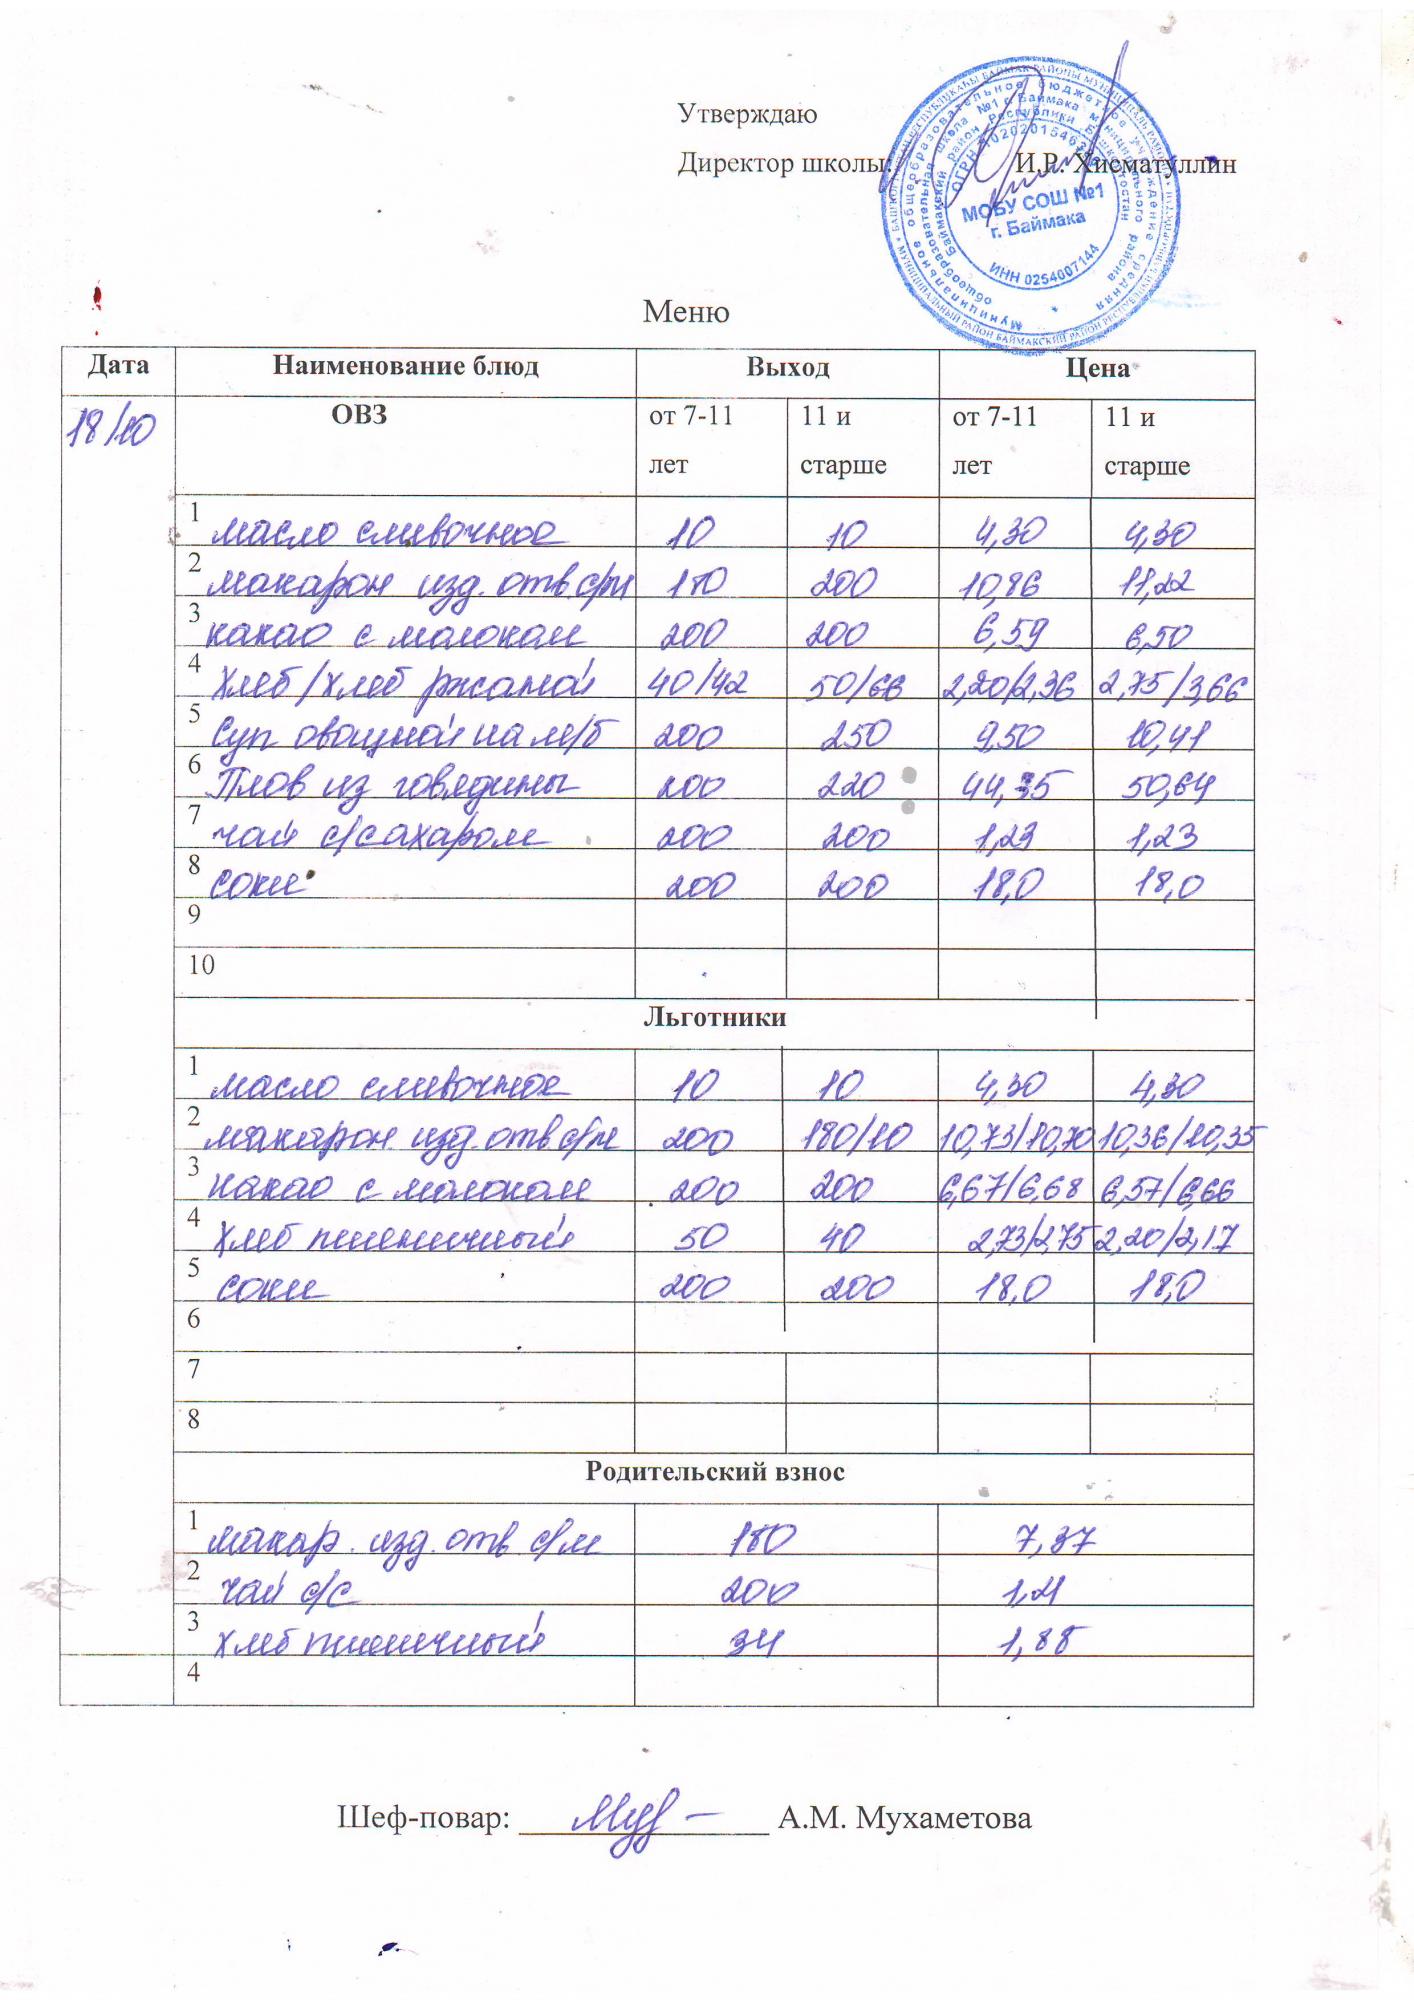 Утверждаю
Директор школы: И.Р. Хисматуллин
МОБУ СОШ №1
г. Баймака
ИНН 0254007144
Меню
Дата Наименование блюд Выход Цена
18/10 ОВЗ от 7-11 лет 11 и старше от 7-11 лет 11 и старше
1 масло сливочное 10 10 4,30 4,30
2 макарон изд. отв. с/м 180 200 10,86 11,22
3 какао с молоком 200 200 6,59 6,50
4 Хлеб/хлеб ржаной 40/42 50/66 2,20/2,36 2,75/3,66
5 Суп овощной на м/б 200 250 9,50 10,41
6 Плов из говядины 200 220 44,35 50,64
7 чай с/сахаром 200 200 1,23 1,23
8 соки 200 200 18,0 18,0
9
10
Льготники
1 масло сливочное 10 10 4,30 4,30
2 макарон. изд. отв с/м 200 180/10 10,73/10,70 10,36/10,35
3 какао с молоком 200 200 6,67/6,68 6,57/6,66
4 Хлеб пшеничный 50 40 2,73/2,75 2,20/2,17
5 соки 200 200 18,0 18,0
6
7
8
Родительский взнос
1 макар. изд. отв с/м 180 7,37
2 чай с/с 200 1,21
3 хлеб пшеничный 34 1,88
4
Шеф-повар: А.М. Мухаметова